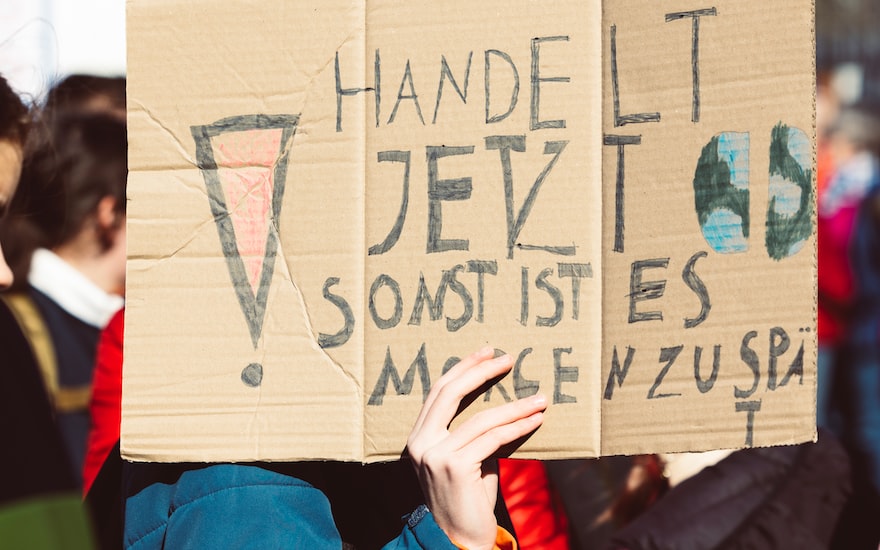 HANDELT
JETZT
SONST IST ES
MORGEN ZU SPÄ
T